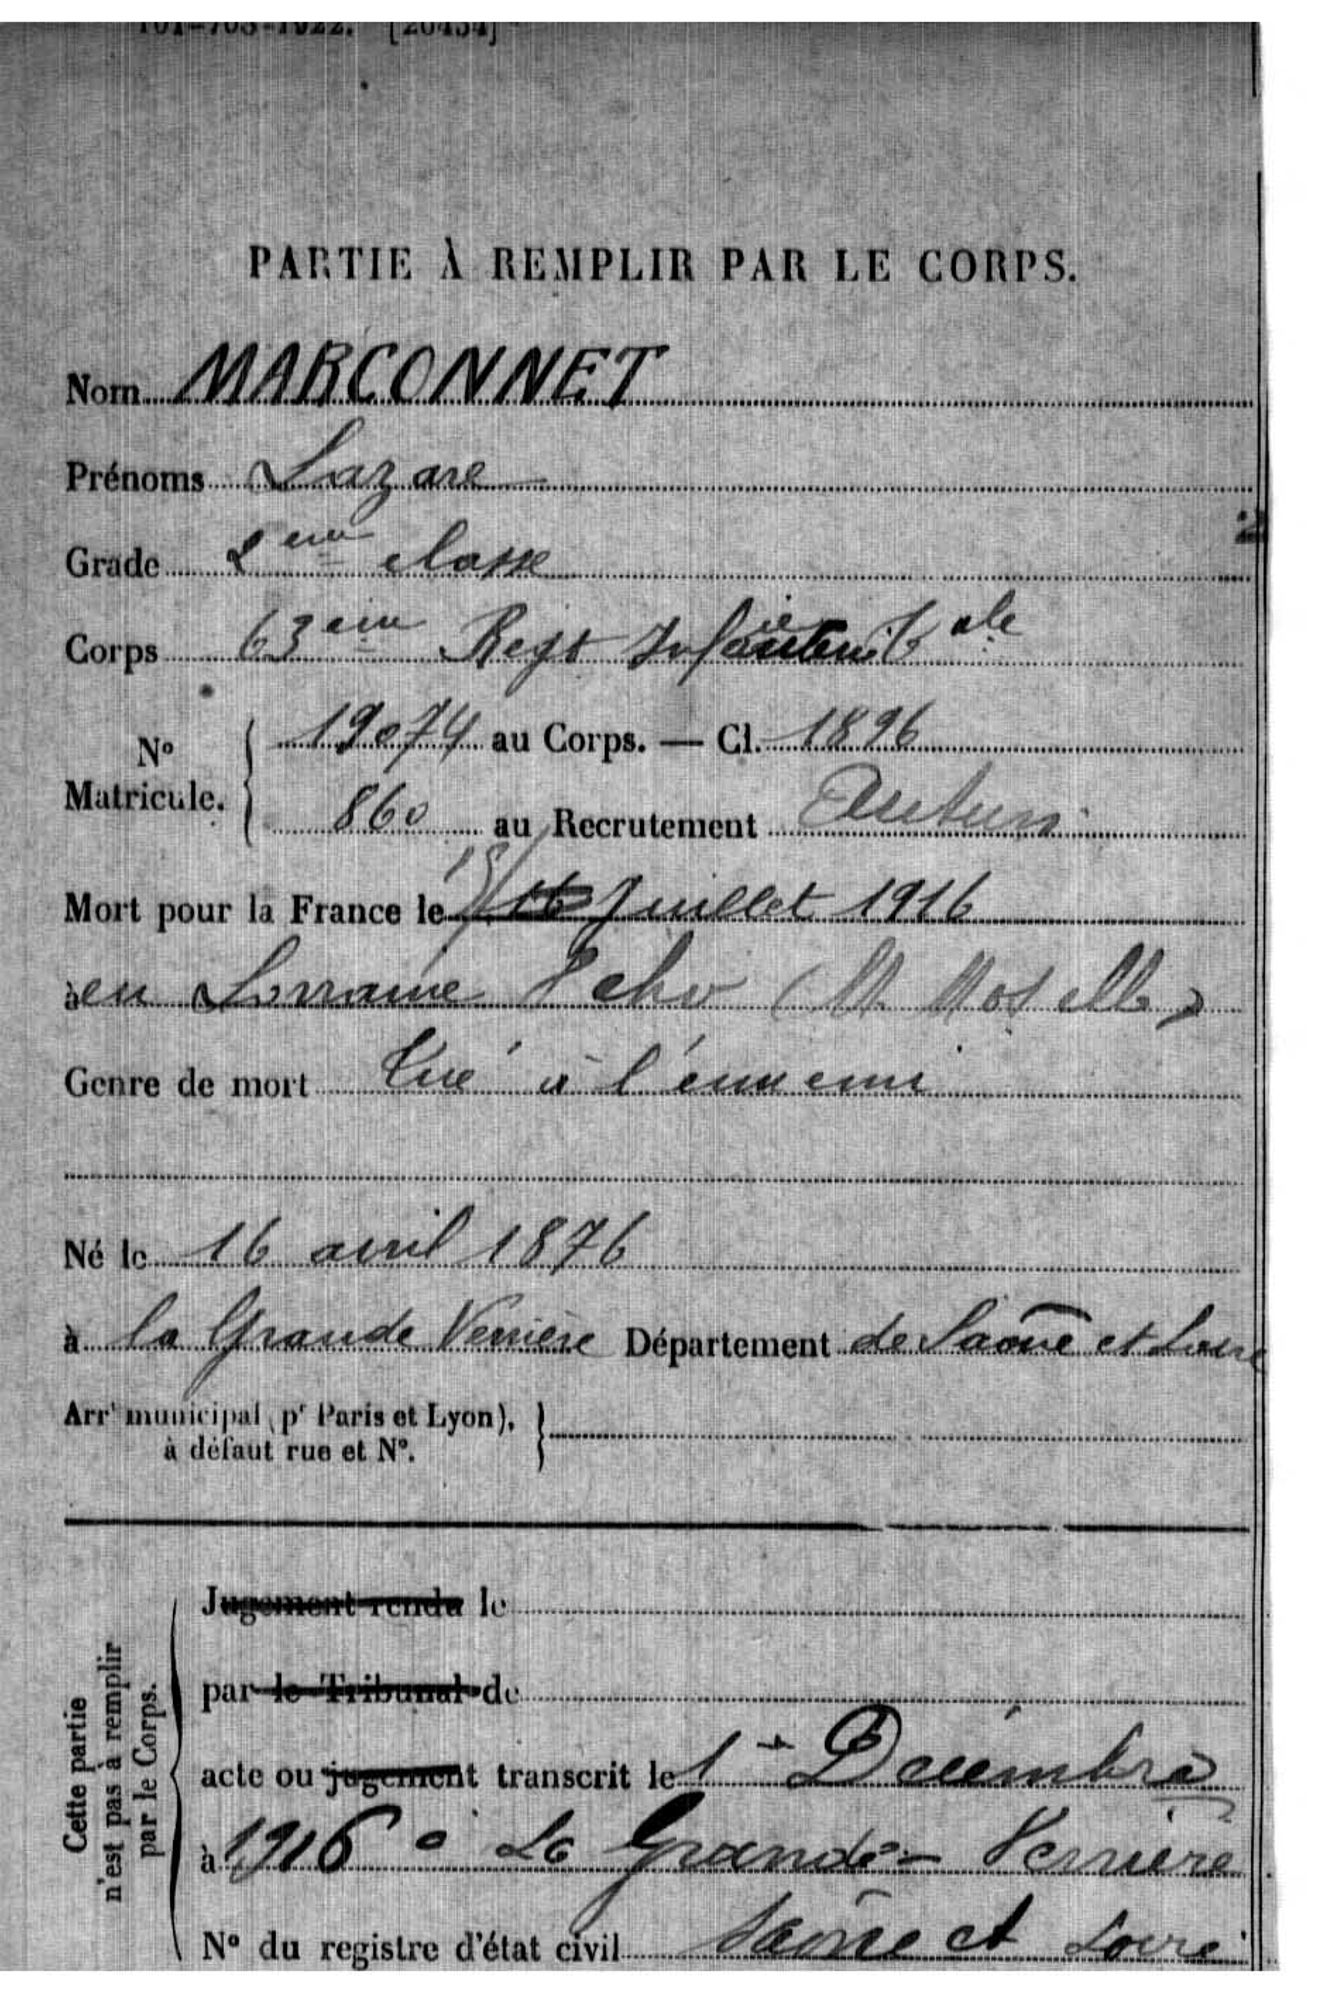 101-703-1922. [26434]
PARTIE À REMPLIR PAR LE CORPS.
Nom MARCONNET
Prénoms Lazare
Grade 2eme classe
Corps 63eme Regt Infanterie Cale
N° Matricule. 19074 au Corps. — Cl. 1896
860 au Recrutement Autun
15/
Mort pour la France le 16 Juillet 1916
à en Lorraine Veho (M. Moselle)
Genre de mort Tué à l'ennemi
Né le 16 avril 1876
à la Grande Verrière Département de Saône et Loire
Arrt municipal (pr Paris et Lyon),
à défaut rue et N°.
Cette partie
n'est pas à remplir
par le Corps.
Jugement rendu le
par le Tribunal de
acte ou jugement transcrit le 1er Décembre
à 1916 à La Grande-Verrière
N° du registre d'état civil Saône et Loire